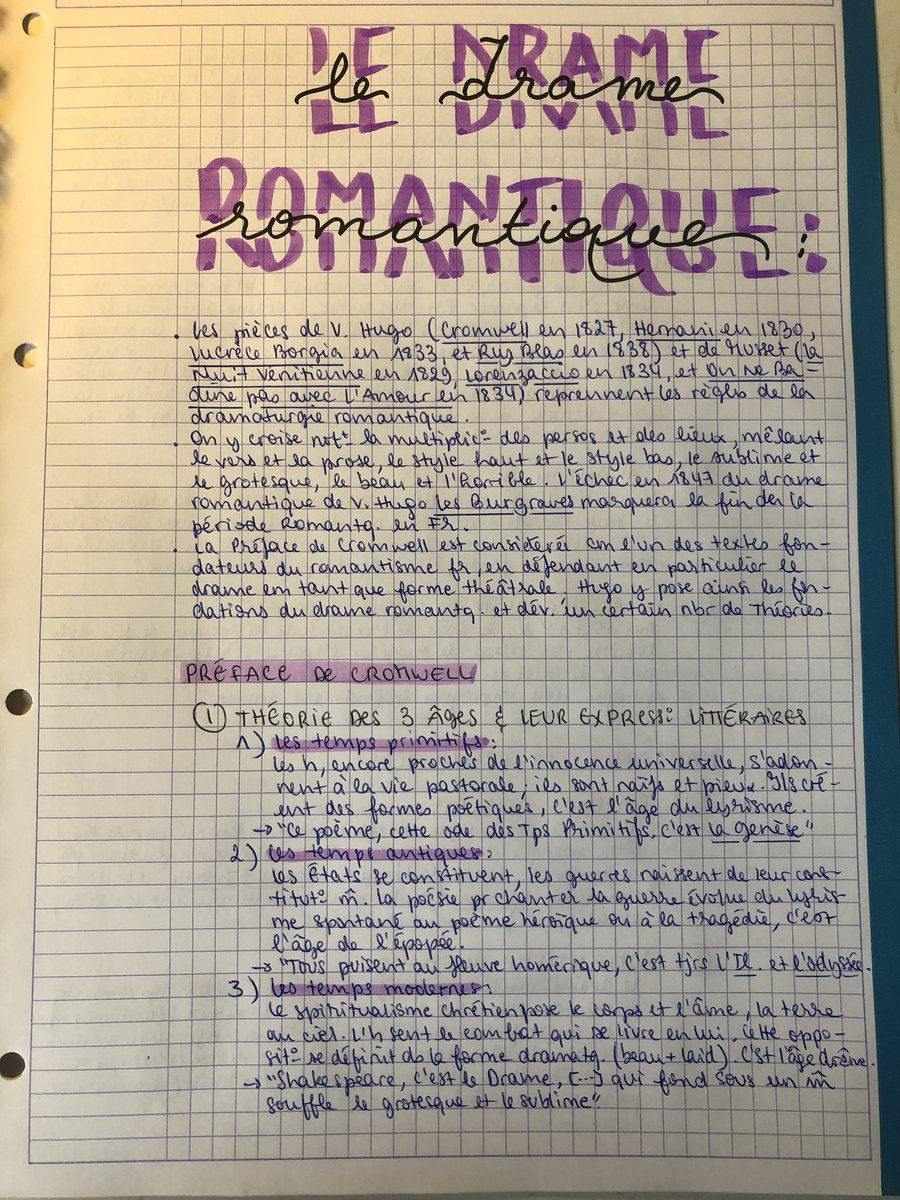 LE DRAME
le drame
ROMANTIQUE:
romantique:
. Les pièces de V. Hugo (Cromwell en 1827, Hernani en 1830,
Lucrèce Borgia en 1833, et Ruy Blas en 1838) et de Musset (La
Nuit Vénitienne en 1829, Lorenzaccio en 1834, et On Ne Ba=
dine pas avec L'Amour en 1834) reprennent les règles de la
dramaturgie romantique.
. On y croise not° la multiplic° des persos et des lieux, mêlant
le vers et la prose, le style haut et le style bas, le sublime et
le grotesque, le beau et l'Horrible. L'échec en 1847 du drame
romantique de V. Hugo les Burgraves marquera la fin de la
période Romantq. en Fr.
. La Préface de Cromwell est considérée cm l'un des textes fon-
dateurs du romantisme fr, en défendant en particulier le
drame em tant que forme théâtrale. Hugo y pose ainsi les fon-
dations du drame romantq. et dév. un certain nbr de Théories.
PRÉFACE DE CROMWELL
① THÉORIE DES 3 ÂGES & LEUR EXPRESS° LITTÉRAIRES
1) les temps primitifs:
les h, encore proches de l'innocence universelle, s'adon-
nent à la vie pastorale, ils sont naïfs et pieux. Ils cré-
ent des formes poétiques, c'est l'âge du lyrisme.
→ "Ce poème, cette ode des Tps Primitifs, c'est la genèse"
2) les temps antiques:
Les États se constituent, les guerres naissent de leur cons-
titut° m̂. La poésie pr chanter la guerre évolue du lyris-
me spontané au poème héroïque ou à la tragédie, c'est
l'âge de l'épopée.
→ "Tous puisent au fleuve homérique, c'est tjrs l'Il. et l'odyssée.
3) les temps modernes:
Le spiritualisme chrétien pose le corps et l'âme, la terre
au ciel. L'h sent le combat qui se livre en lui. Cette oppo-
sit° se définit ds la forme dramatq. (beau + laid). C'st l'âge drame.
→ "Shakespeare, c'est le Drame, [...] qui fond sous un m̂
souffle le grotesque et le sublime".